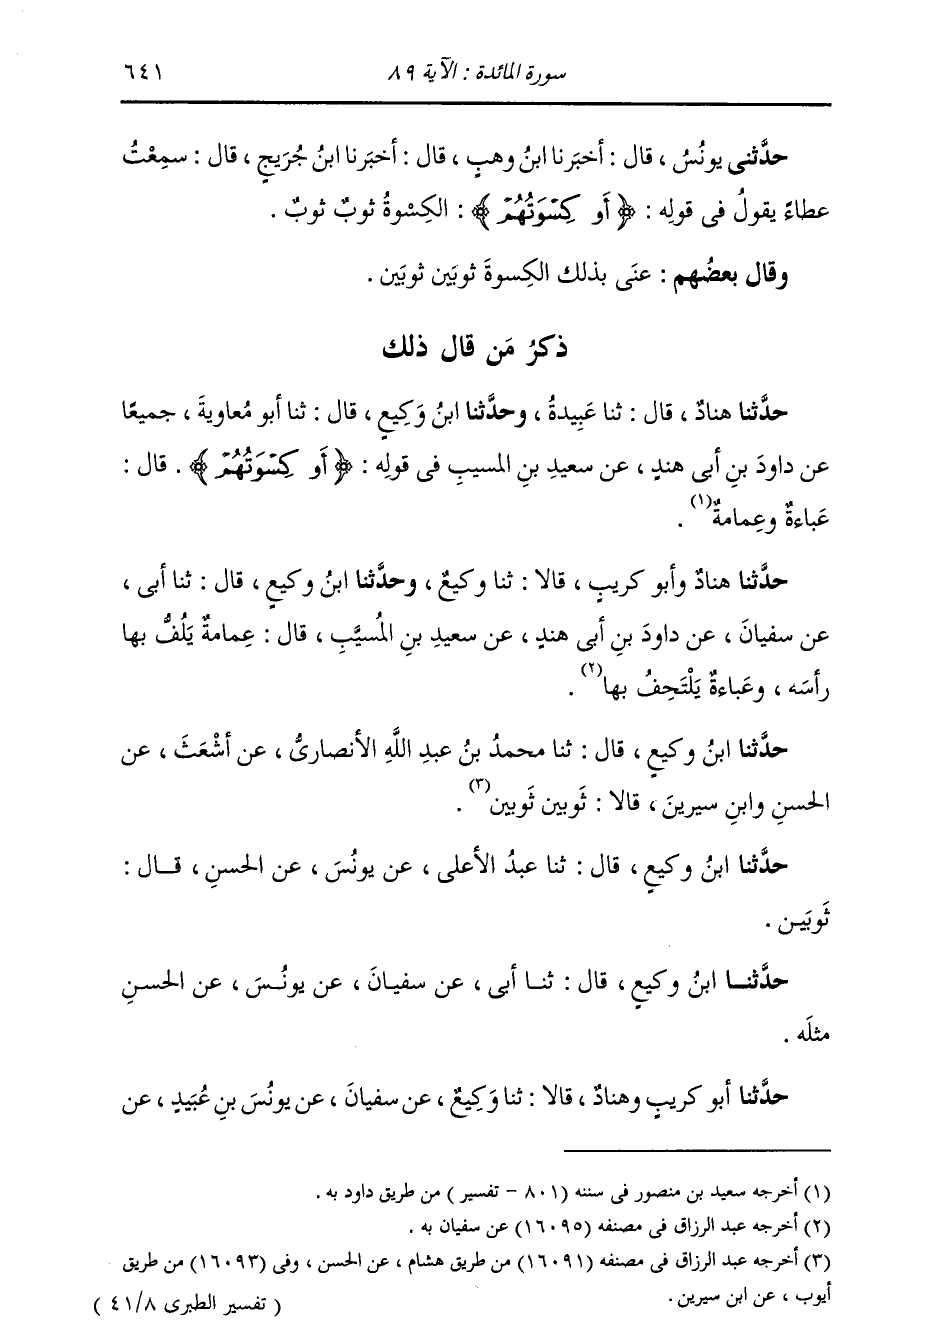 سورة المائدة : الآية ٨٩
٦٤١
حدَّثنى يونُسُ ، قال : أخبَرنا ابنُ وهبٍ ، قال : أخبَرنا ابنُ جُرَيجٍ ، قال : سمِعْتُ
عطاءً يقولُ فى قولِه : ﴿ أَو كِسْوَتُهُمْ ﴾ : الكِسْوةُ ثوبٌ ثوبٌ .
وقال بعضُهم : عنَى بذلك الكِسوةَ ثوبَين ثوبَين .
ذكرُ مَن قال ذلك
حدَّثنا هنادٌ ، قال : ثنا عَبِيدةُ ، وحدَّثنا ابنُ وَكِيعٍ ، قال : ثنا أبو مُعاويةَ ، جميعًا
عن داودَ بنِ أبى هندٍ ، عن سعيدِ بنِ المسيبِ فى قولِه : ﴿ أَو كِسْوَتُهُمْ ﴾ . قال :
عَباءةٌ وعِمامةٌ(١) .
حدَّثنا هنادٌ وأبو كريبٍ ، قالا : ثنا وكيعٌ ، وحدَّثنا ابنُ وكيعٍ ، قال : ثنا أبى ،
عن سفيانَ ، عن داودَ بنِ أبى هندٍ ، عن سعيدِ بنِ المُسيَّبِ ، قال : عِمامةٌ يَلُفُّ بها
رأسَه ، وعَباءةٌ يَلْتَحِفُ بها(٢) .
حدَّثنا ابنُ وكيعٍ ، قال : ثنا محمدُ بنُ عبدِ اللَّهِ الأنصارىُّ ، عن أشْعَثَ ، عن
الحسنِ وابنِ سيرينَ ، قالا : ثَوبين ثَوبين(٣) .
حدَّثنا ابنُ وكيعٍ ، قال : ثنا عبدُ الأعلى ، عن يونُسَ ، عن الحسنِ ، قال :
ثَوبَين .
حدَّثنا ابنُ وكيعٍ ، قال : ثنا أبى ، عن سفيانَ ، عن يونُسَ ، عن الحسنِ
مثلَه .
حدَّثنا أبو كريبٍ وهنادٌ ، قالا : ثنا وَكِيعٌ ، عن سفيانَ ، عن يونُسَ بنِ عُبَيدٍ ، عن
(١) أخرجه سعيد بن منصور فى سننه (٨٠١ - تفسير ) من طريق داود به .
(٢) أخرجه عبد الرزاق فى مصنفه (١٦٠٩٥) عن سفيان به .
(٣) أخرجه عبد الرزاق فى مصنفه (١٦٠٩١) من طريق هشام ، عن الحسن ، وفى (١٦٠٩٣) من طريق
أيوب ، عن ابن سيرين .
( تفسير الطبرى ٤١/٨ )